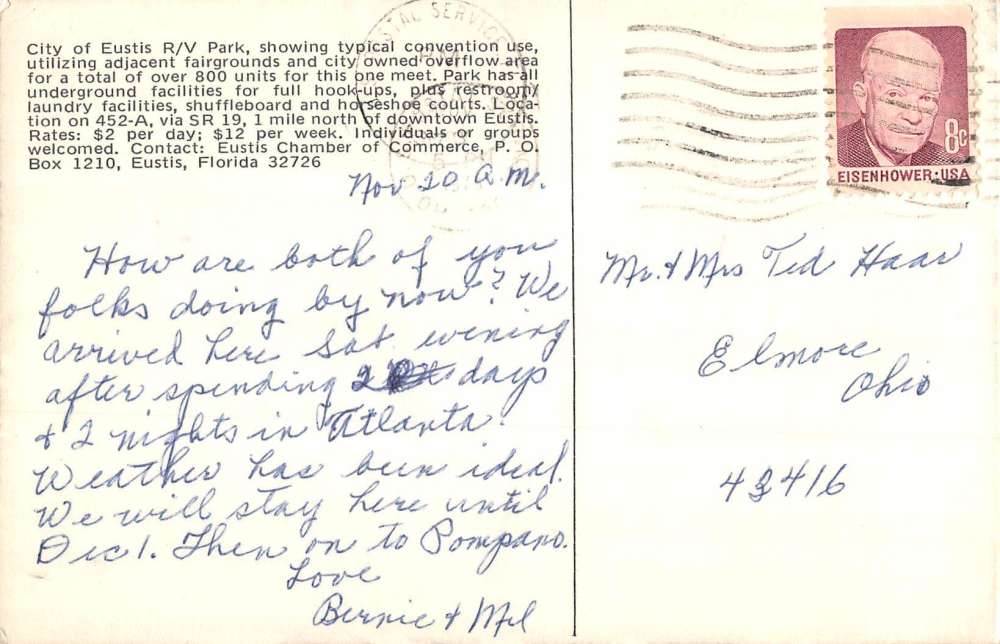 City of Eustis R/V Park, showing typical convention use,
utilizing adjacent fairgrounds and city owned overflow area
for a total of over 800 units for this one meet. Park has all
underground facilities for full hook-ups, plus restroom/
laundry facilities, shuffleboard and horseshoe courts. Loca-
tion on 452-A, via SR 19, 1 mile north of downtown Eustis.
Rates: $2 per day; $12 per week. Individuals or groups
welcomed. Contact: Eustis Chamber of Commerce, P. O.
Box 1210, Eustis, Florida 32726
Nov 20 A.M.
How are both of you
folks doing by now? We
arrived here Sat evening
after spending 2 days
& 2 nights in Atlanta.
Weather has been ideal.
We will stay here until
Dec 1. Then on to Pompano.
Love
Bernie & Mel
POSTAL SERVICE
PM
8c
EISENHOWER·USA
Mr. & Mrs Ted Haar
Elmore
Ohio
43416